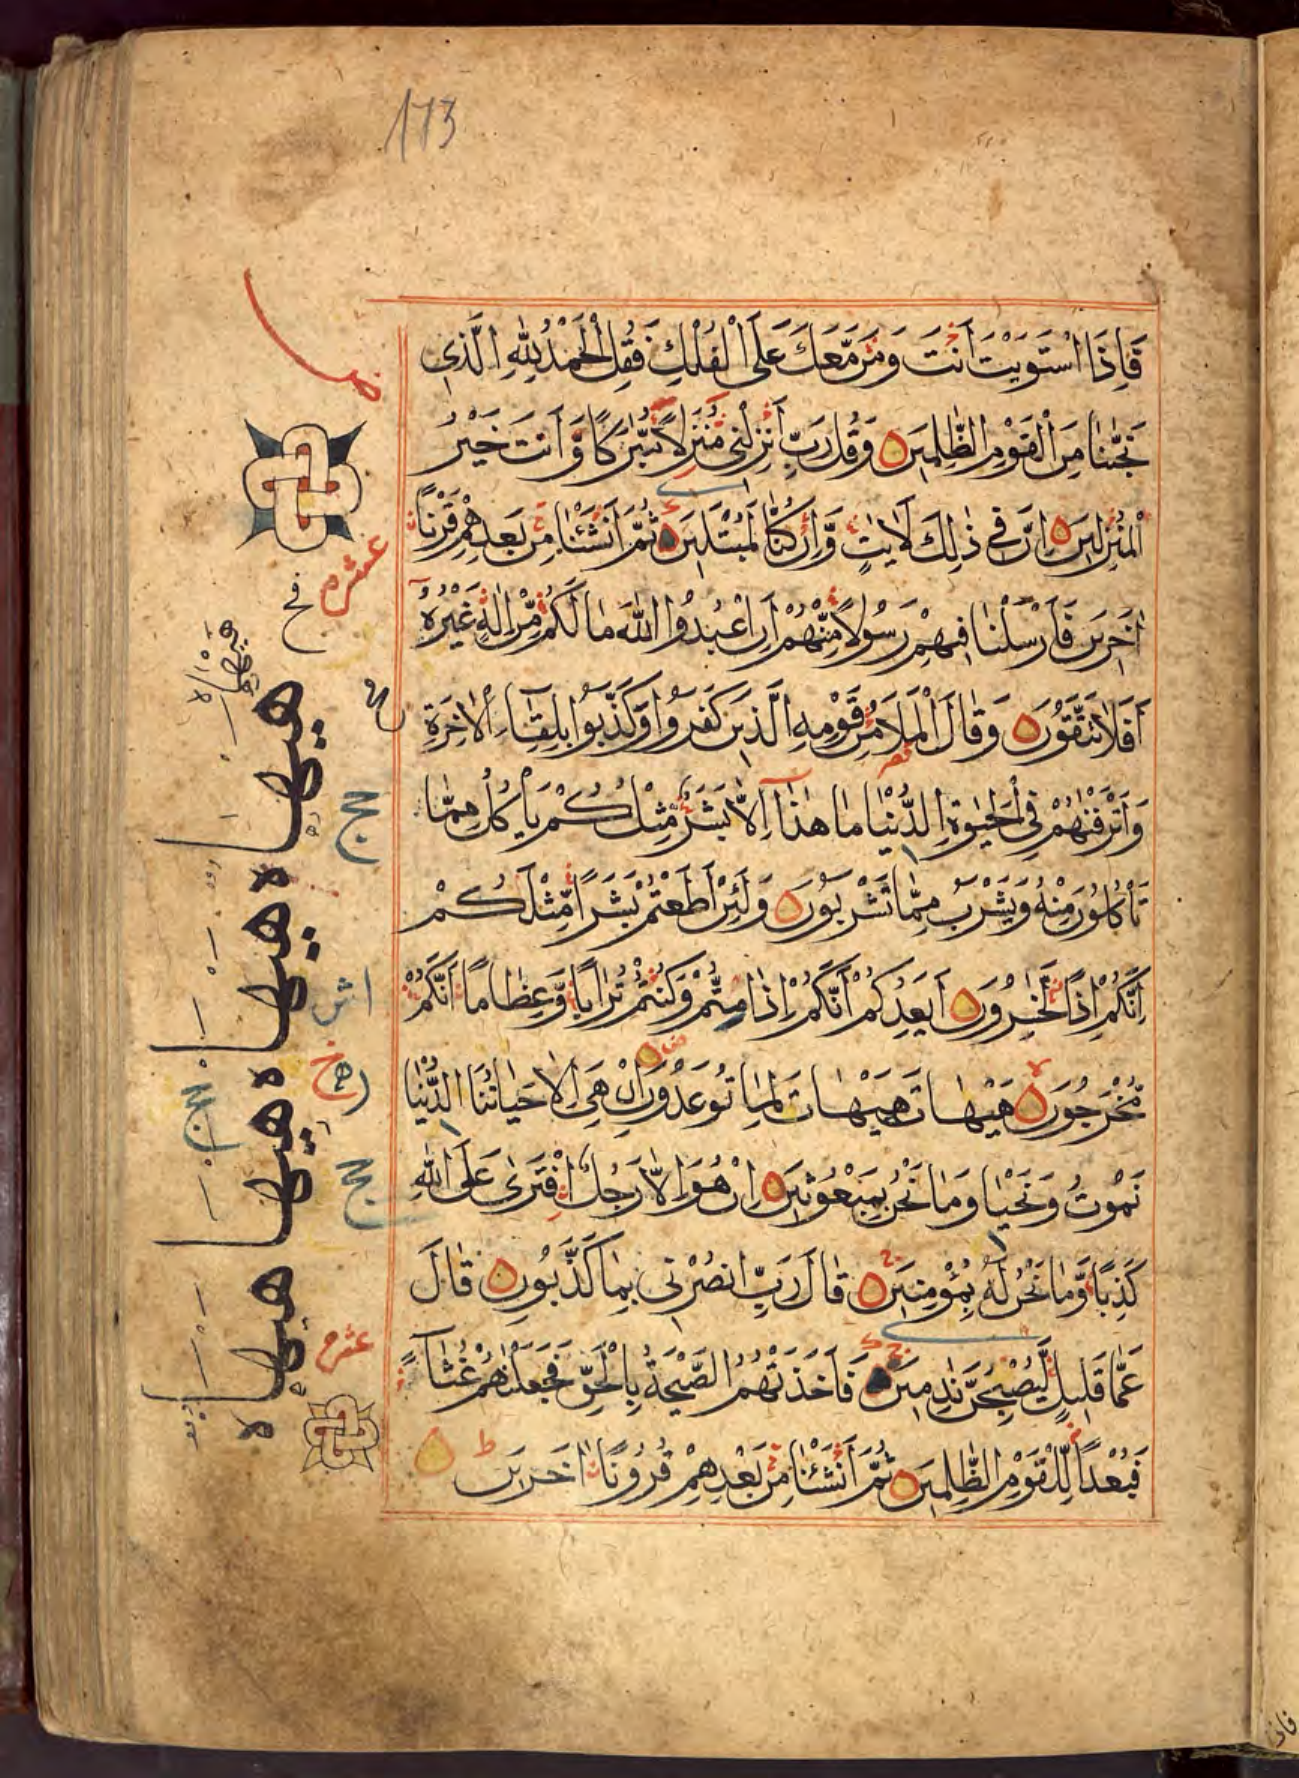 173
فَاِذَا اسْتَوَيْتَ اَنْتَ وَمَنْ مَّعَكَ عَلَى الْفُلْكِ فَقُلِ الْحَمْدُ لِلّٰهِ الَّذِى
نَجّٰىنَا مِنَ الْقَوْمِ الظّٰلِمِينَ وَقُلْ رَبِّ اَنْزِلْنِى مُنْزَلًا مُّبٰرَكًا وَّاَنْتَ خَيْرُ
الْمُنْزِلِينَ اِنَّ فِى ذٰلِكَ لَاٰيٰتٍ وَّاِنْ كُنَّا لَمُبْتَلِينَ ثُمَّ اَنْشَئْنَا مِنْ بَعْدِهِمْ قَرْنًا
اٰخَرِينَ فَاَرْسَلْنَا فِيهِمْ رَسُولًا مِّنْهُمْ اَنِ اعْبُدُوا اللّٰهَ مَا لَكُمْ مِّنْ اِلٰهٍ غَيْرُهٗ
اَفَلَا تَتَّقُونَ وَقَالَ الْمَلَاُ مِنْ قَوْمِهِ الَّذِينَ كَفَرُوا وَكَذَّبُوا بِلِقَآءِ الْاٰخِرَةِ
وَاَتْرَفْنٰهُمْ فِى الْحَيٰوةِ الدُّنْيَا مَا هٰذَا اِلَّا بَشَرٌ مِّثْلُكُمْ يَاْكُلُ مِمَّا
تَاْكُلُونَ مِنْهُ وَيَشْرَبُ مِمَّا تَشْرَبُونَ وَلَئِنْ اَطَعْتُمْ بَشَرًا مِّثْلَكُمْ
اِنَّكُمْ اِذًا لَّخٰسِرُونَ اَيَعِدُكُمْ اَنَّكُمْ اِذَا مِتُّمْ وَكُنْتُمْ تُرَابًا وَّعِظَامًا اَنَّكُمْ
مُّخْرَجُونَ هَيْهَاتَ هَيْهَاتَ لِمَا تُوعَدُونَ اِنْ هِىَ اِلَّا حَيَاتُنَا الدُّنْيَا
نَمُوتُ وَنَحْيَا وَمَا نَحْنُ بِمَبْعُوثِينَ اِنْ هُوَ اِلَّا رَجُلٌ افْتَرٰى عَلَى اللّٰهِ
كَذِبًا وَّمَا نَحْنُ لَهٗ بِمُؤْمِنِينَ قَالَ رَبِّ انْصُرْنِى بِمَا كَذَّبُونِ قَالَ
عَمَّا قَلِيلٍ لَّيُصْبِحُنَّ نٰدِمِينَ فَاَخَذَتْهُمُ الصَّيْحَةُ بِالْحَقِّ فَجَعَلْنٰهُمْ غُثَآءً
فَبُعْدًا لِّلْقَوْمِ الظّٰلِمِينَ ثُمَّ اَنْشَئْنَا مِنْ بَعْدِهِمْ قُرُونًا اٰخَرِينَ ط